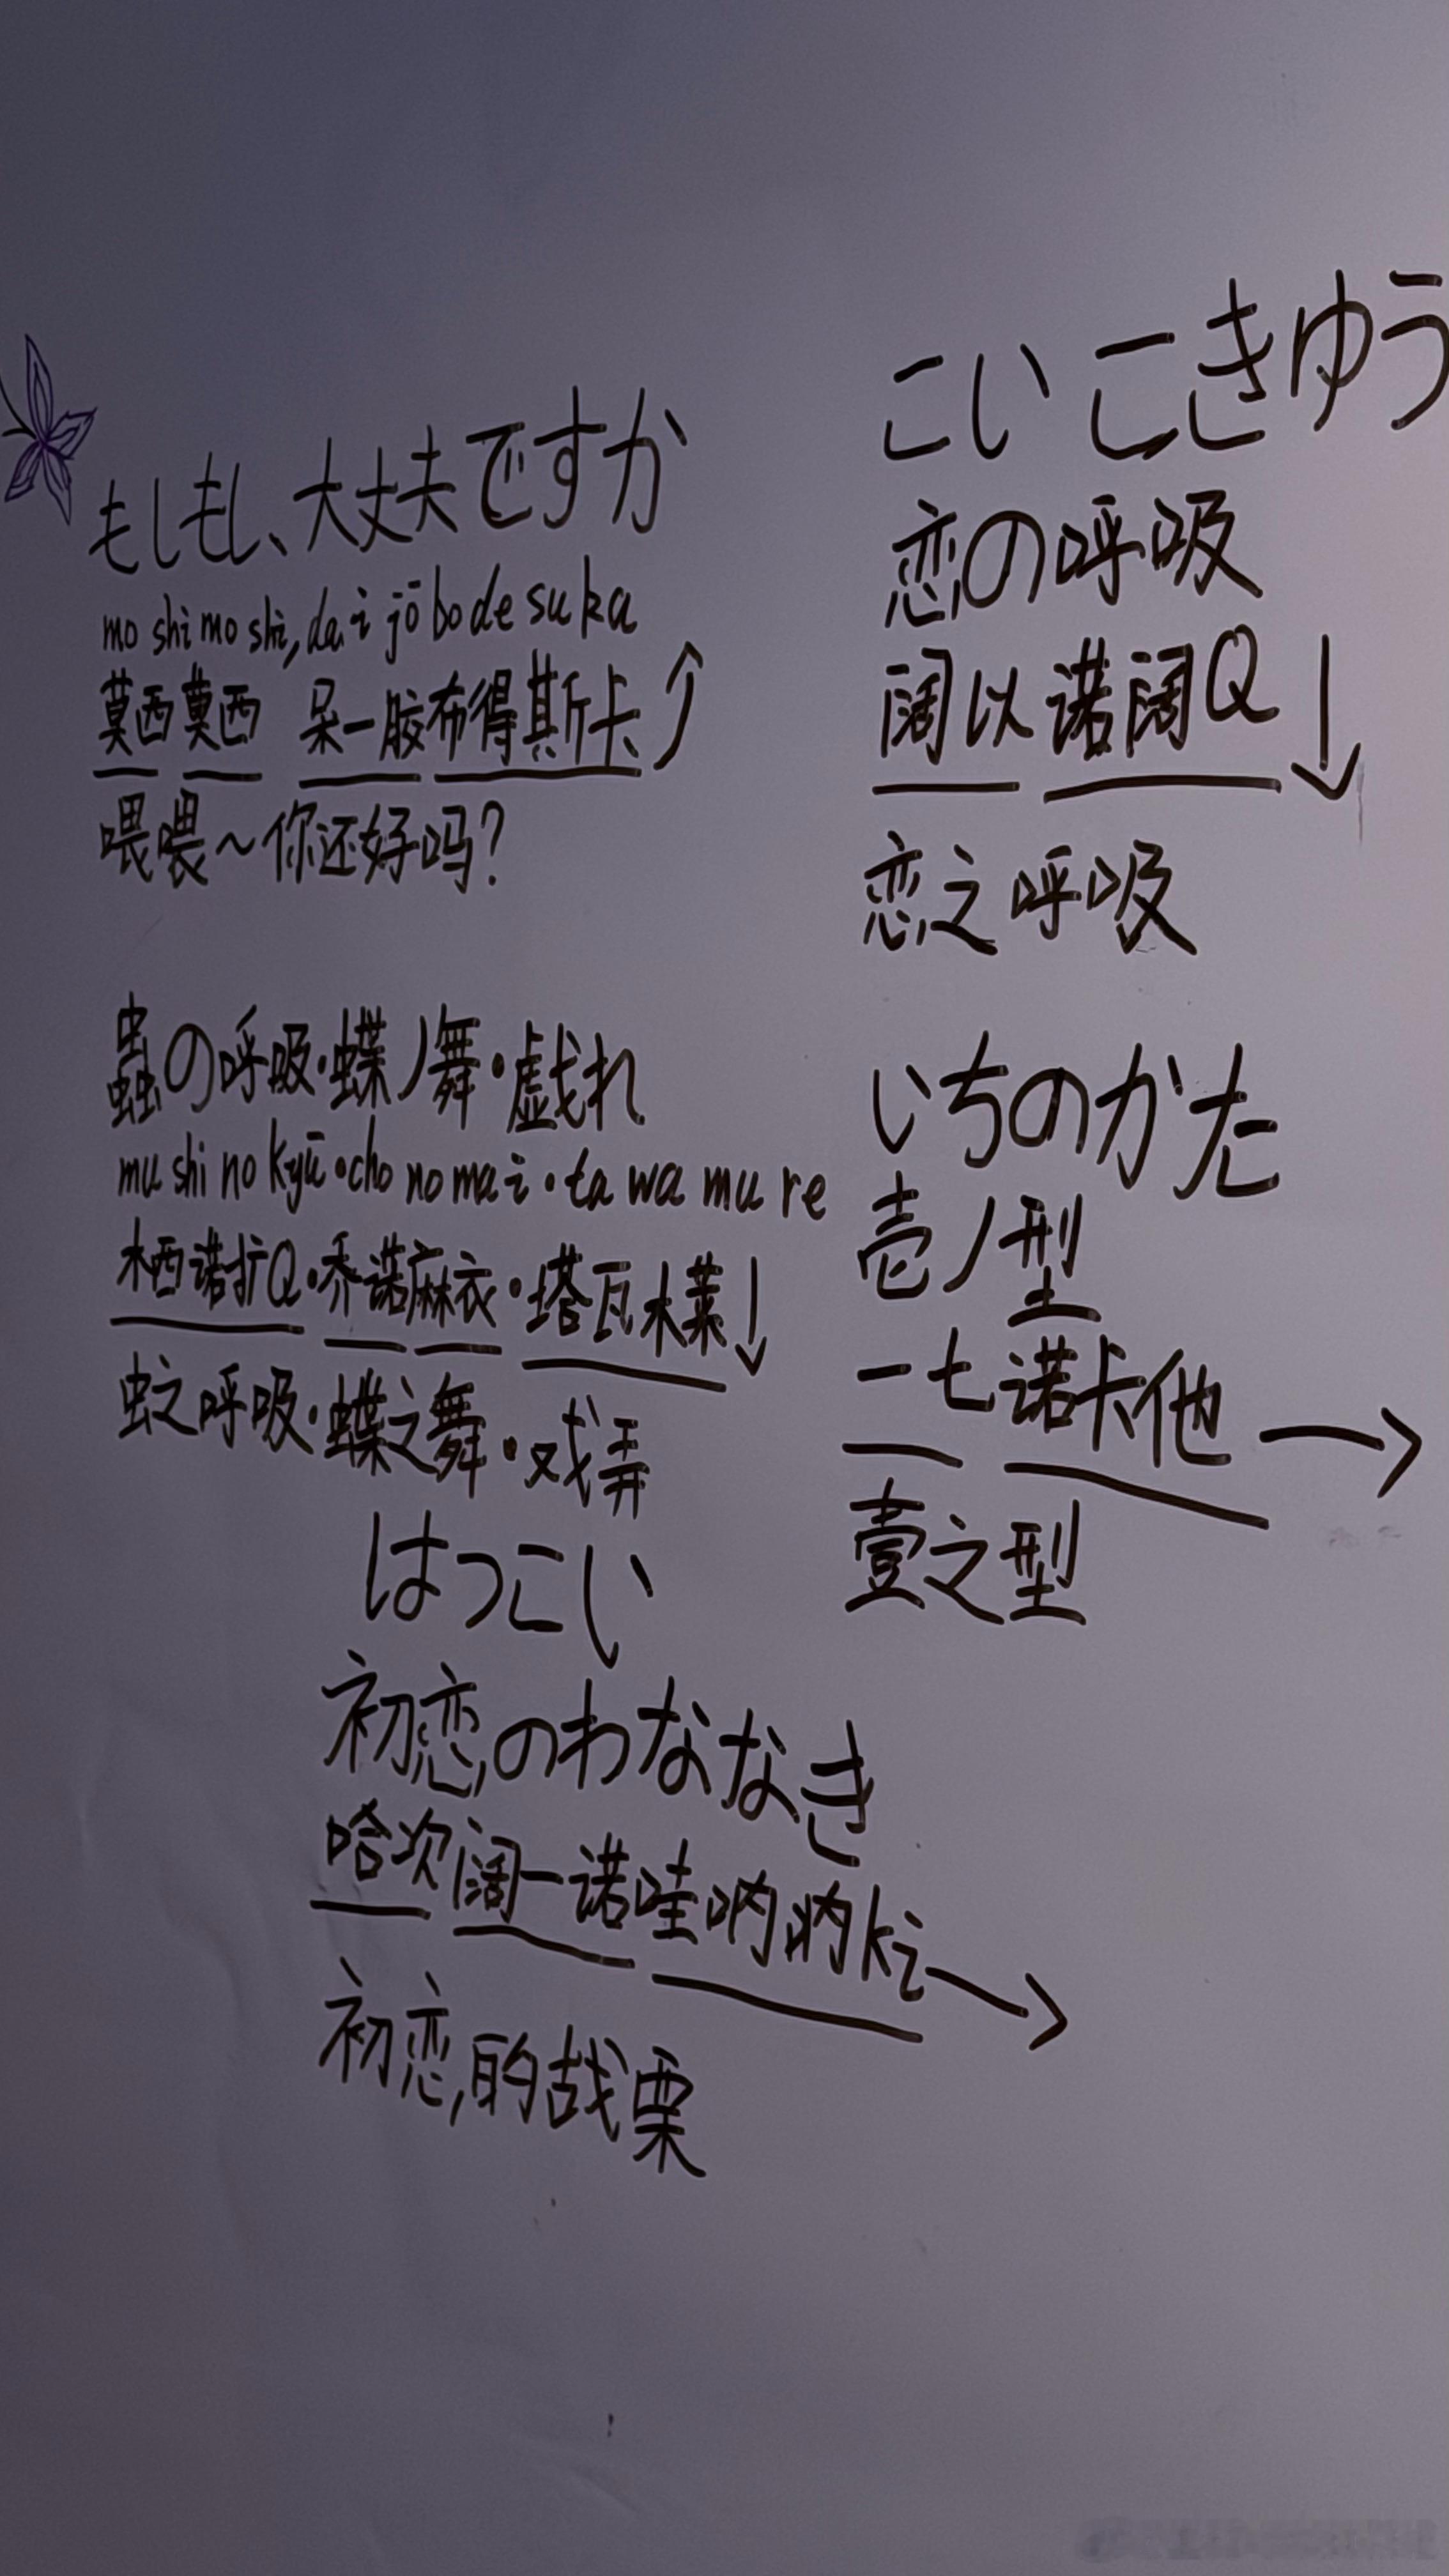 もしもし、大丈夫ですか
mo shi mo shi, da i jō bo de su ka
莫西莫西 呆一胶布得斯卡
喂喂~你还好吗?
蟲の呼吸·蝶ノ舞·戯れ
mu shi no kyū·cho no ma i·ta wa mu re
木西诺扩Q·乔诺麻衣·塔瓦木莱
虫之呼吸·蝶之舞·戏弄
はつこい
初恋のわななき
哈次阔一诺哇呐呐ki
初恋的战栗
こい こきゆう
恋の呼吸
阔以诺阔Q
恋之呼吸
いちのかた
壱ノ型
一七诺卡他
壹之型